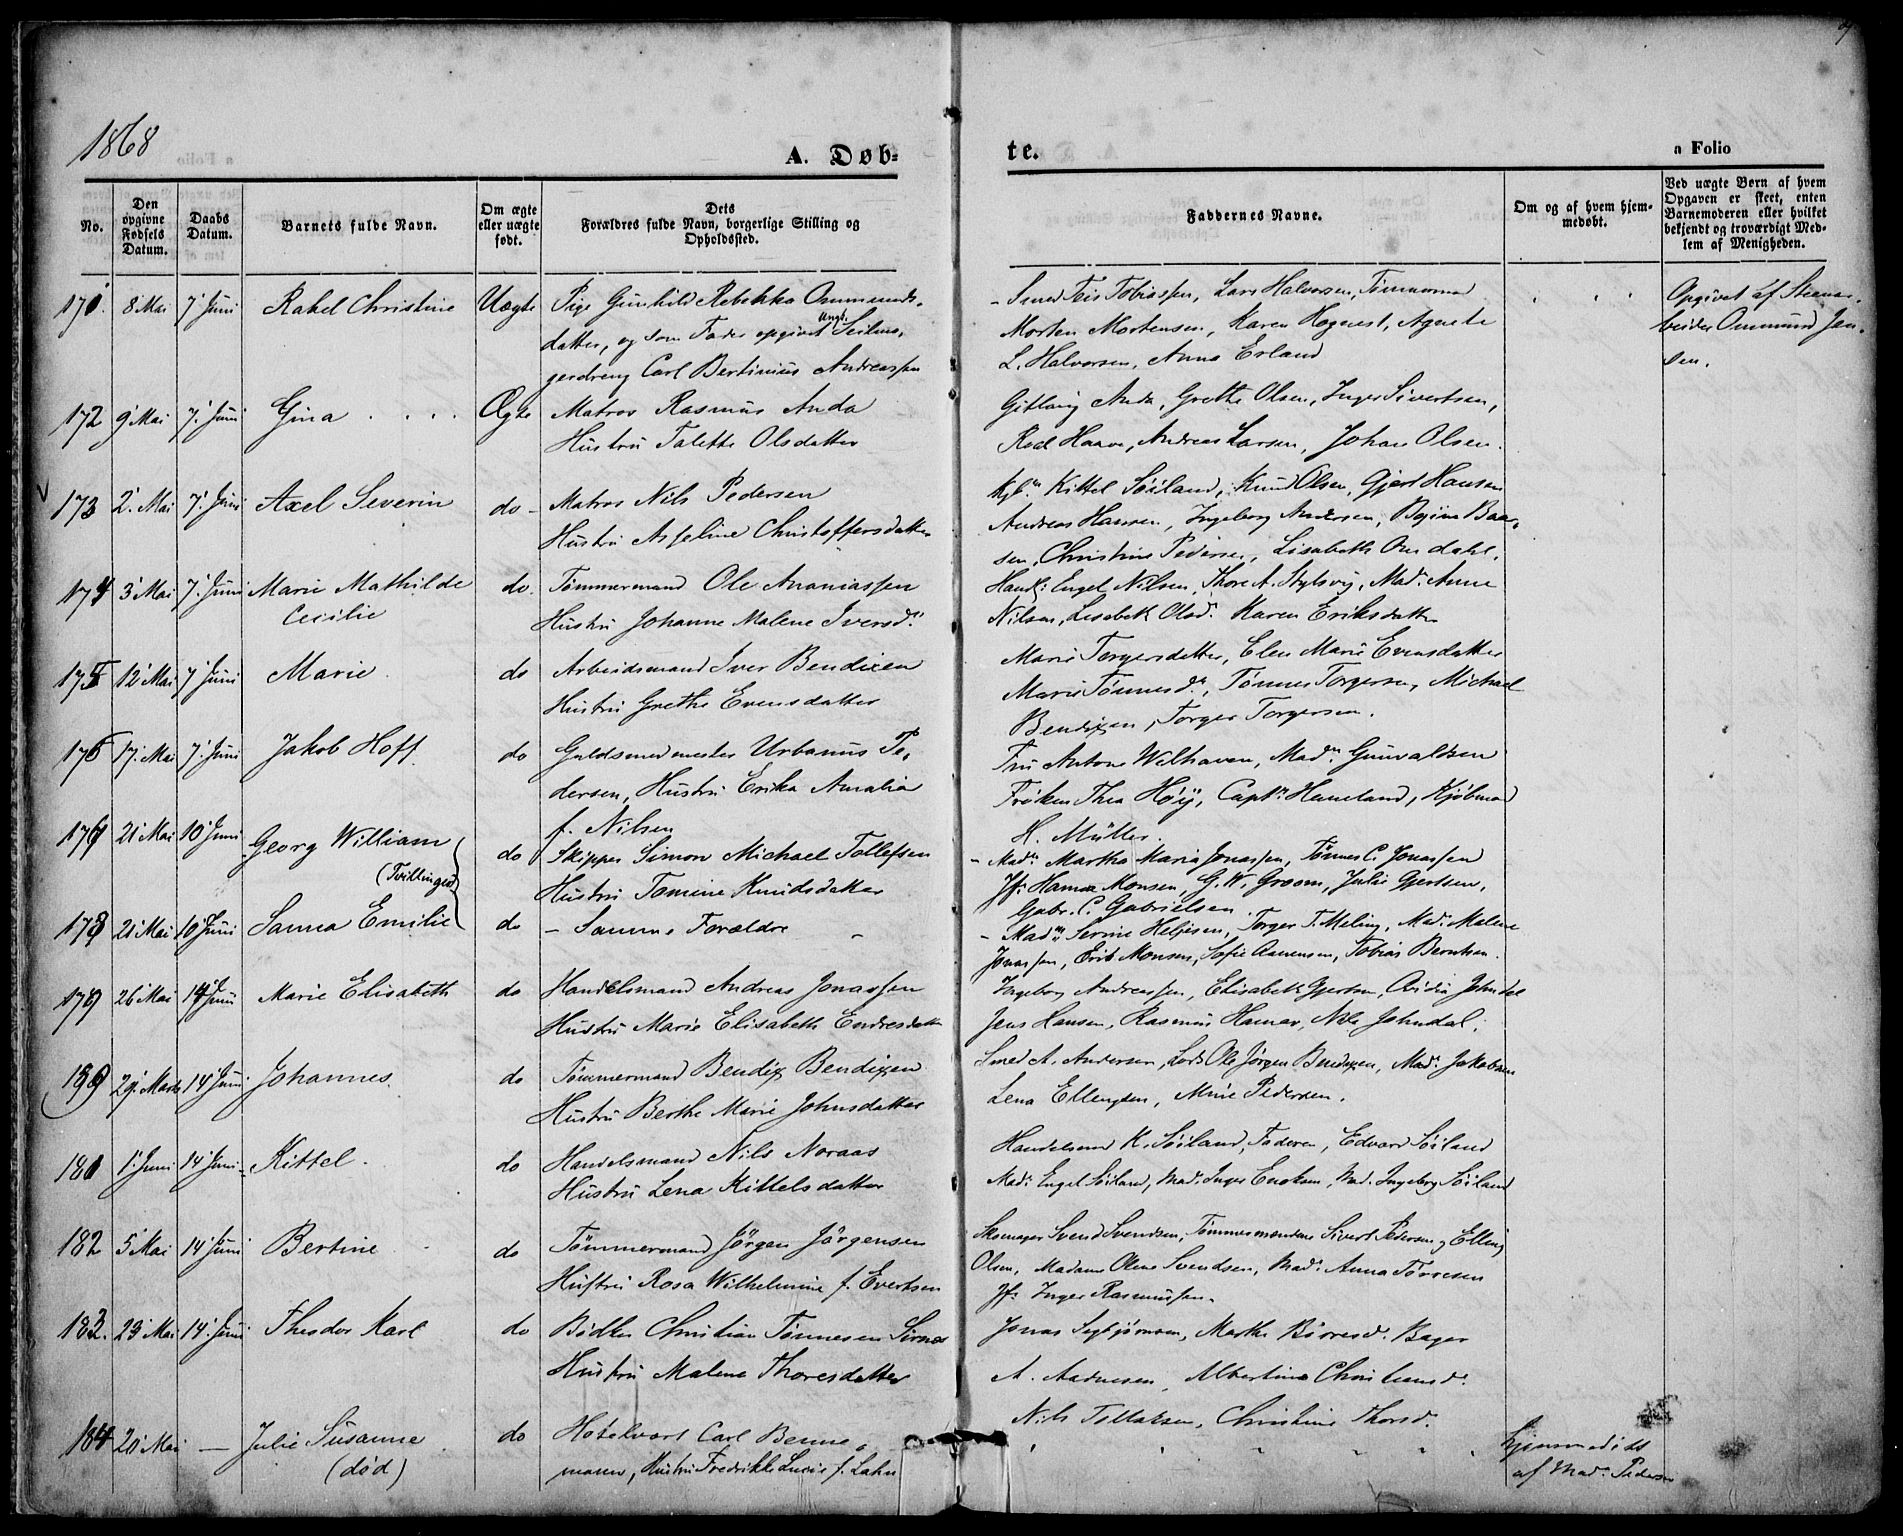 1868
A. Døb-
te.
a Folio
No.
Den opgivne Fødsels Datum.
Daabs Datum.
Barnets fulde Navn.
Om ægte eller uægte født.
Dets Forældres fulde Navn, borgerlige Stilling og Opholdssted.
Faddernes Navne.
Om og af hvem hjemmedøbt.
Ved uægte Børn af hvem Opgaven er skeet, enten Barnemoderen eller hvilket bekjendt og troværdigt Medlem af Menigheden.
171. 8 Mai 7 Juni Rakel Christine Uægte Pige Gunhild Rebekka Ommunds-
datter, og som Fader opgivet Ungk. Seilma-
gerdreng Carl Bertinius Andreassen
- Smed Teis Tobiassen, Lars Halvorsen, Tømmermd
Morten Mortensen, Karen Hognest, Agnete
L. Halvorsen, Anna Erland
Opgivet af Steenar-
beider Ommund Jen-
sen.
172 9 Mai 7 Juni Gina Ægte Matros Rasmus Anda
Hustru Talette Olsdatter
Gitlaug Anda, Grethe Olsen, Inger Sivertsen,
Roel Haave, Andreas Larsen, Johan Olsen.
173 2 Mai 7 Juni Axel Severin do - Matros Nils Pedersen
Hustru Asseline Christoffersdatter
Kittel Søiland, Knud Olsen, Gjert Hansen
Andreas Hansen, Ingeborg Andersen, Bogine Baar-
sen, Christine Pedersen, Lisabeth Omdahl.
174 3 Mai 7 Juni Marie Mathilde do. Tømmermand Ole Ananiassen
Cecilie
Hustru Johanne Malene Iversd.
Handl: Engel Nilsen, Thore A. Stylsvig, Mad. Anne
Nilsen, Lisabeth Olsd. Karen Eriksdatter
175 12 Mai 7 Juni Marie do Arbeidsmand Iver Bendixen
Hustru Grethe Evensdatter
Marie Torgersdatter, Elen Marie Evensdatter
Marie Tønnesd., Tønnes Torgersen, Michael
Bendixen, Torger Torgersen.
176 17. Mai 7 Juni Jakob Hoff. do Guldsmedmester Urbanus Pe-
dersen, Hustru Erika Amalia
f. Nilsen
Fru Antone Welhaven, Mad. Gunvaldsen
Frøken Thea Høÿ, Capt. Haneland, Kjøbmad
H. Müller.
177 21 Mai 10 Juni Georg William do Skipper Simon Michael Tollefsen
(Tvillinger)
Hustru Tomine Knudsdatter
- Mad. Martha Maria Jonassen, Tønnes C. Jonassen
Jf: Hanna Monsen, G. W. Groom, Julie Gjertsen,
Gabr. C. Gabrielsen.
178 21 Mai 10 Juni Sanna Emilie do - Samme Forældre -
- Mad. Serine Heljesen, Torger T. Meling, Mad. Malene
Jonassen, Erik Monsen, Sofie Aanensen, Tobias Berntsen.
179 26 Mai 14 Juni Marie Elisabeth do Handelsmand Andreas Jonassen
Hustru Marie Elisabeth Endresdatter
Ingeborg Andreassen, Elisabeth Gjertsen, Johndal
Jens Hansen, Rasmus Hanar, Nils Johndal.
180 29 Marts 14 Juni Johannes. do Tømmermand Bendix Bendixen
Hustru Berthe Marie Johnsdatter
Smed A. Andersen, Lods Ole Jørgen Bendixen, Mad. Jakobsen
Lena Ellingsen, Mine Pedersen.
181 1 Juni 14 Juni Kittel. do Handelsmand Nils Noraas
Hustru Lena Kittelsdatter
Handelsmd K. Søiland, Faderen, Edvard Søiland
Mad. Engel Søiland, Mad. Inger Enoksen, Mad. Ingeborg Søiland
182 5 Mai 14 Juni Bertine do Tømmermand Jørgen Jørgensen
Hustru Rosa Wilhelmine f. Evertsen
Skomager Svend Svendsen, Tømmermændene Sivert Pedersen og Elling
Olsen, Madame Olene Svendsen, Mad. Anna Tørresen
Jf: Inger Rasmussen.
183. 23 Mai 14 Juni Theodor Karl do Bødker Christian Tønnesen Sirnes
Hustru Malene Thoresdatter
Jonas Sigbjørnsen, Marthe Børresd. Bager
A. Aadnesen, Albertine Christensd.
Nils Tollaksen, Christine Thorsd.
184 20 Mai — Julie Susanne do Hotelvært Carl Benne-
(død)
mann, Hustru Fredrikke Lucie f. Lahn
hjemmedøbt
af Mad. Pedersen